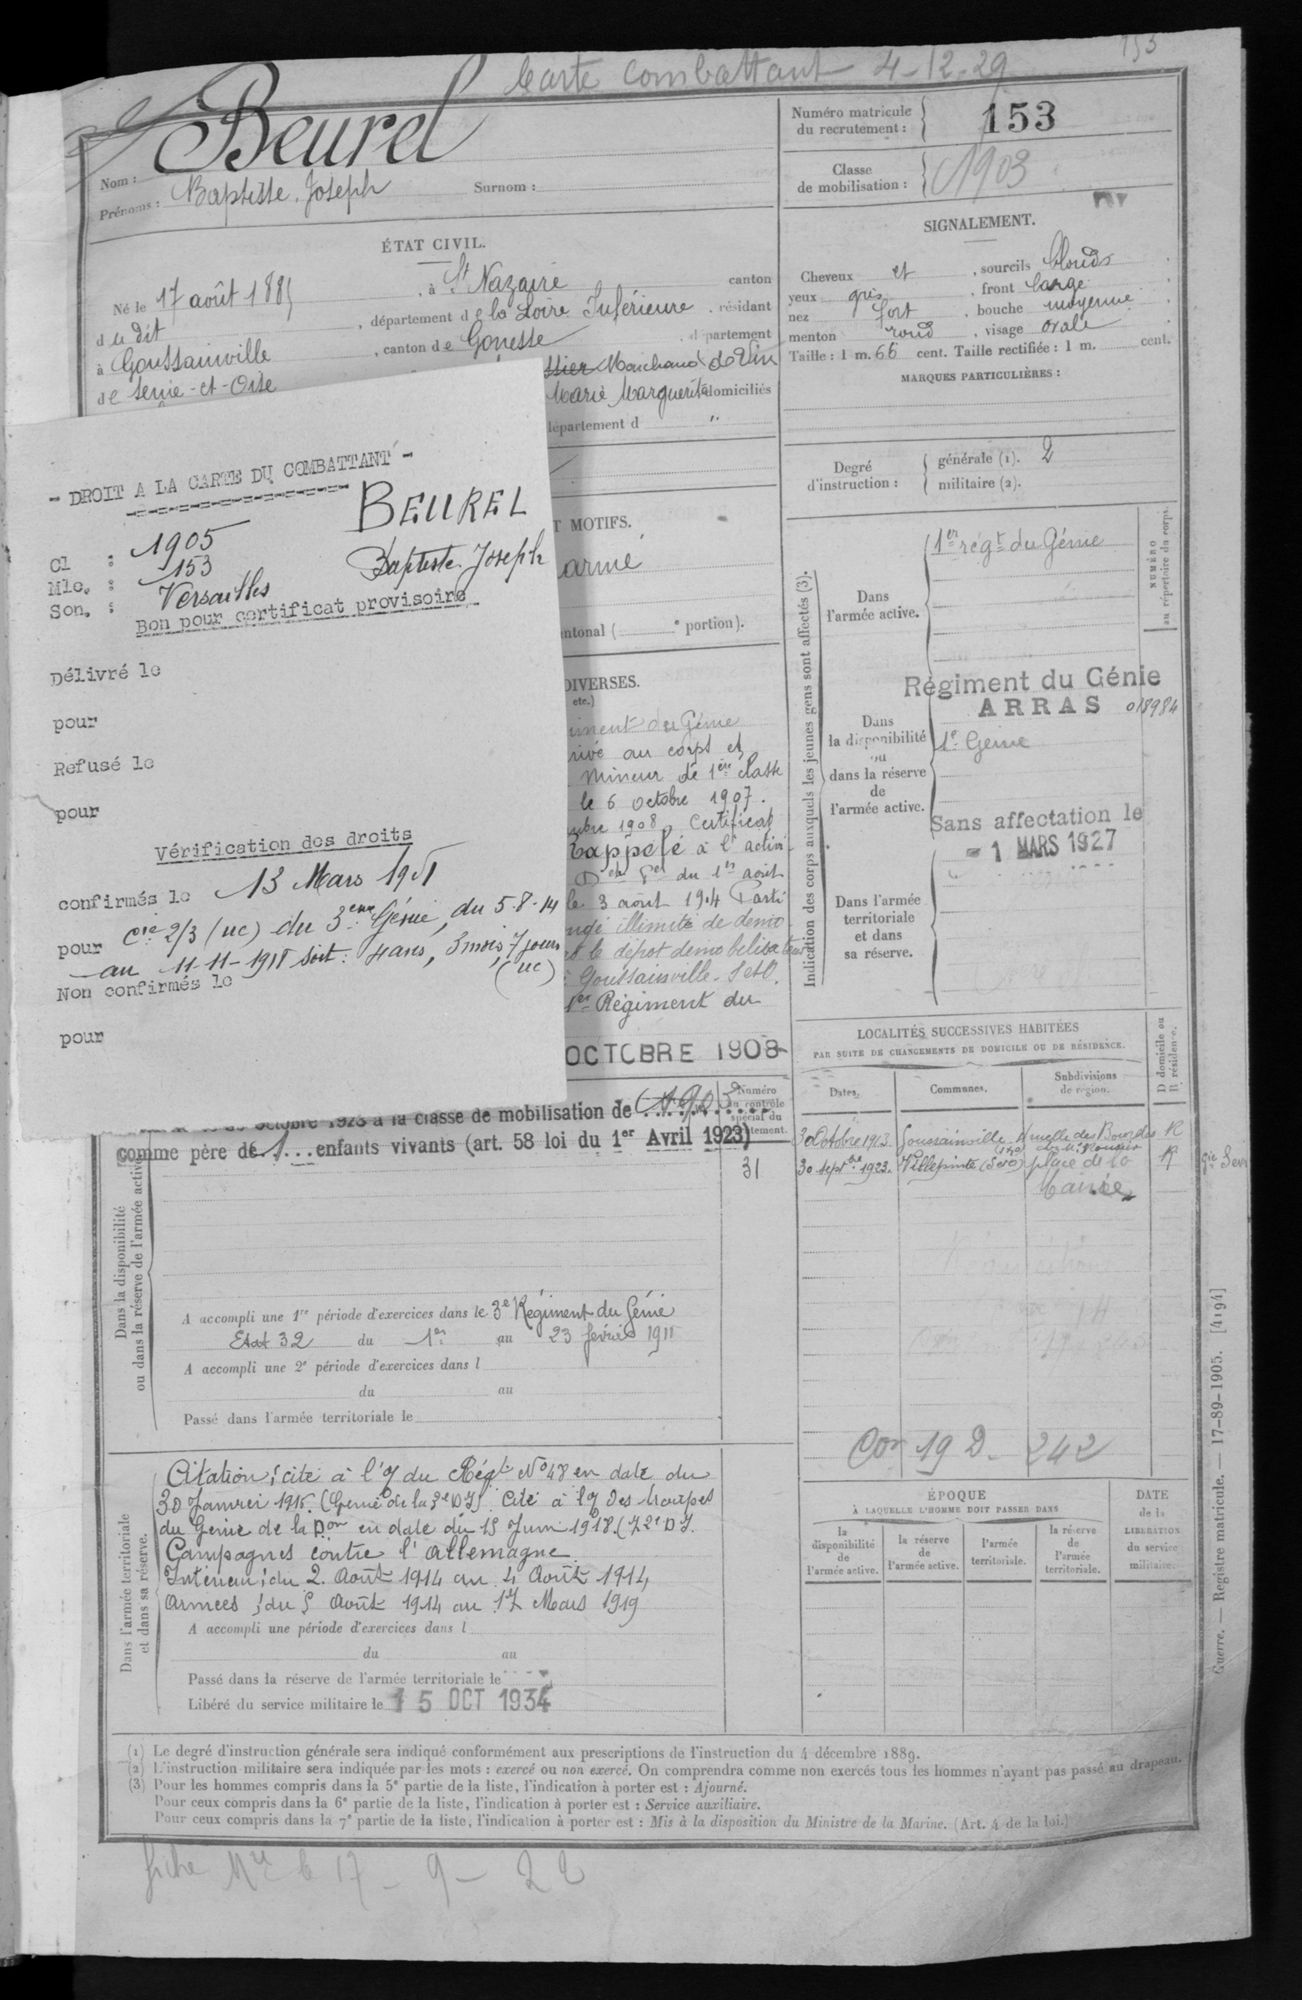 Carte combattant 4-12-29
153
Beurel
Nom :
Prénoms : Baptiste Joseph
Surnom :
Numéro matricule
du recrutement :
153
Classe
de mobilisation :
1903
ÉTAT CIVIL.
Né le 17 août 1885, à St Nazaire canton
du dit, département de la Loire Inférieure, résidant
à Goussainville, canton de Gonesse, département
de Seine-et-Oise
Marchand de Vin
Marie Marguerite domiciliés
département d "
SIGNALEMENT.
Cheveux et, sourcils blonds
yeux gris, front large
nez fort, bouche moyenne
menton rond, visage ovale
Taille : 1 m. 66 cent. Taille rectifiée : 1 m. cent.
MARQUES PARTICULIÈRES :
Degré
d'instruction :
générale (1). 2
militaire (2).
- DROIT A LA CARTE DU COMBATTANT -
BEUREL
Baptiste Joseph
Cl : 1905
Mle. : 153
Son. : Versailles
Bon pour certificat provisoire
Délivré le
pour
Refusé le
pour
Vérification des droits
confirmés le 13 Mars 1951
pour Cie 2/3 (uc) du 3eme Génie, du 5-8-14
au 11-11-1918 soit : 4 ans, 3 mois, 7 jours
(uc)
Non confirmés le
pour
T MOTIFS.
armé
antonal ( e portion).
DIVERSES.
etc.)
iment du Génie
rivé au corps et
Mineur de 1ère classe
le 6 octobre 1907.
mbre 1908. Certificat
Rappelé à l'activi
du 1er août
le 3 août 1914 Parti
ngé illimité de démo
le dépôt démobilisateur
Goussainville. S et O.
1er Régiment du
OCTOBRE 1908
octobre 1923 à la classe de mobilisation de 1903
comme père de 1 enfants vivants (art. 58 loi du 1er Avril 1923)
Numéro
au contrôle
spécial du
31
Indication des corps auxquels les jeunes gens sont affectés (3).
NUMÉRO
au répertoire du corps.
Dans
l'armée active.
1er régt du Génie
Régiment du Génie
ARRAS 018984
Dans
la disponibilité
ou
dans la réserve
de
l'armée active.
1er Génie
Sans affectation le
- 1 MARS 1927
Dans l'armée
territoriale
et dans
sa réserve.
LOCALITÉS SUCCESSIVES HABITÉES
PAR SUITE DE CHANGEMENTS DE DOMICILE OU DE RÉSIDENCE.
D domicile ou
R résidence.
Dates.
Communes.
Subdivisions
de région.
30 Octobre 1913. Goussainville
R
30 septbre 1922. Villepinte (S et O) place de la R
Mairie
Dans la disponibilité
ou dans la réserve de l'armée active.
A accompli une 1re période d'exercices dans le 3e Régiment du Génie
Etat 32 du 1er au 23 février 1911
A accompli une 2e période d'exercices dans l
du au
Passé dans l'armée territoriale le
Cor 19 D. 242
Dans l'armée territoriale
et dans sa réserve.
Citation : cité à l'o du Régt No 48 en date du
30 Janvier 1916. (Génie de la 3e DI) Cité à l'o des troupes
du Génie de la Don en date du 15 Juin 1918 (72e DI.
Campagnes contre l'Allemagne
Intérieur : du 2 Août 1914 au 4 Août 1914
Armées : du 5 Août 1914 au 17 Mars 1919
A accompli une période d'exercices dans l
du au
Passé dans la réserve de l'armée territoriale le
Libéré du service militaire le 15 OCT 1934
ÉPOQUE
À LAQUELLE L'HOMME DOIT PASSER DANS
la
disponibilité
de
l'armée active.
la réserve
de
l'armée active.
l'armée
territoriale.
la réserve
de
l'armée
territoriale.
DATE
de la
LIBÉRATION
du service
militaire.
(1) Le degré d'instruction générale sera indiqué conformément aux prescriptions de l'instruction du 4 décembre 1889.
(2) L'instruction militaire sera indiquée par les mots : exercé ou non exercé. On comprendra comme non exercés tous les hommes n'ayant pas passé au drapeau.
(3) Pour les hommes compris dans la 5e partie de la liste, l'indication à porter est : Ajourné.
Pour ceux compris dans la 6e partie de la liste, l'indication à porter est : Service auxiliaire.
Pour ceux compris dans la 7e partie de la liste, l'indication à porter est : Mis à la disposition du Ministre de la Marine. (Art. 4 de la loi.)
Guerre. — Registre matricule. — 17-89-1905. [4194]
fiche Mle le 17 - 9 - 22